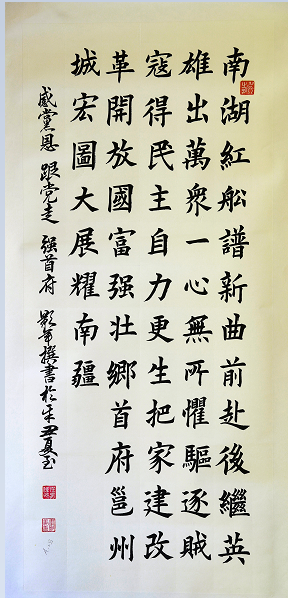 南湖紅船譜新曲前赴後繼英
雄出萬衆一心無所懼驅逐賊
寇得民主自力更生把家建改
革開放國富强壯鄉首府邕州
城宏圖大展耀南疆
感黨恩 跟党走 强首府 影军撰書於辛丑夏至